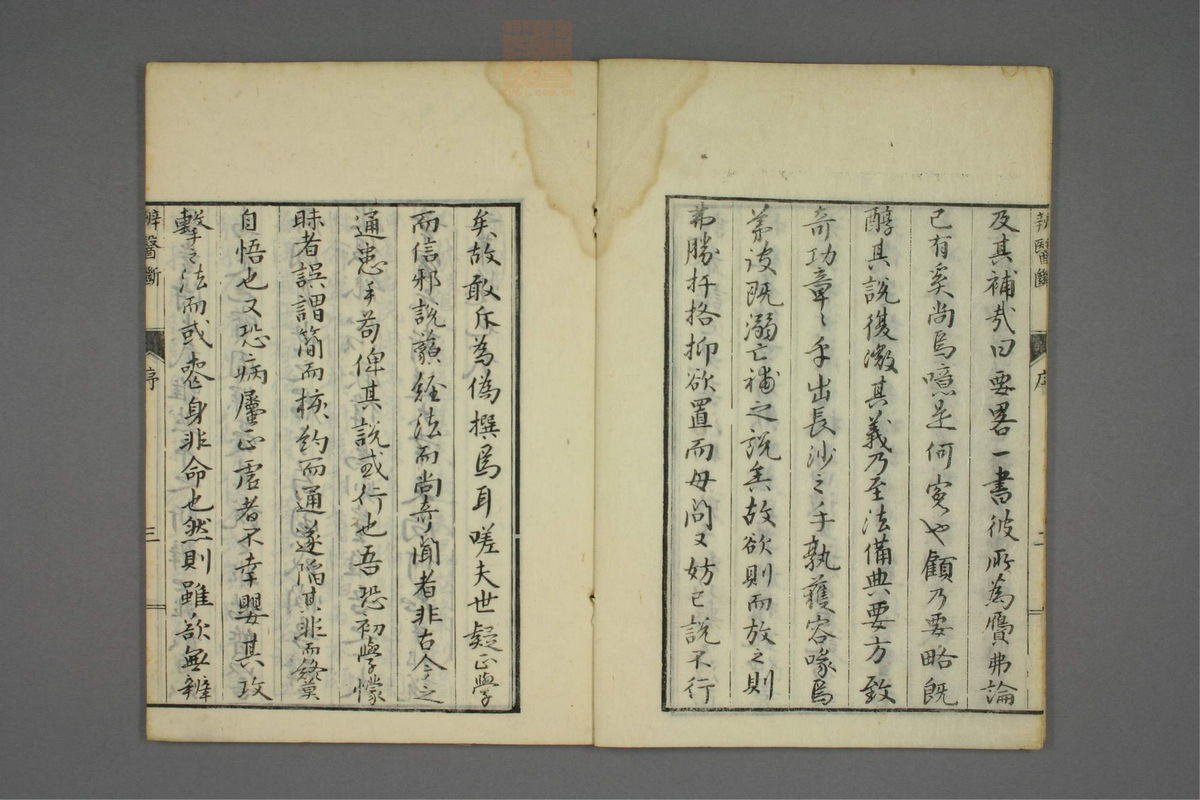 辨醫斷
序
二
及其補哉曰要畧一書彼所為贗弗論
已有奚尚焉噫是何哉也顧乃要略既
醇其說復澂其義乃至法備典要方致
奇功章〻乎出長沙之手孰獲容喙焉
第詖既溺亡補之說矣故欲則而放之則
弗勝扞格抑欲置而毋問又妨已說不行
矣故敢斥為偽撰焉耳嗟夫世疑正學
而信邪說藐經法而尚奇聞者非古今之
通患乎苟俾其說或行也吾恐初學懞
昧者誤謂簡而核約而通遂陷其非而終莫
自悟也又恐病屬正虛者不幸嬰其攻
擊之法而或委身非命也然則雖欲無辨
辨醫斷
序
三